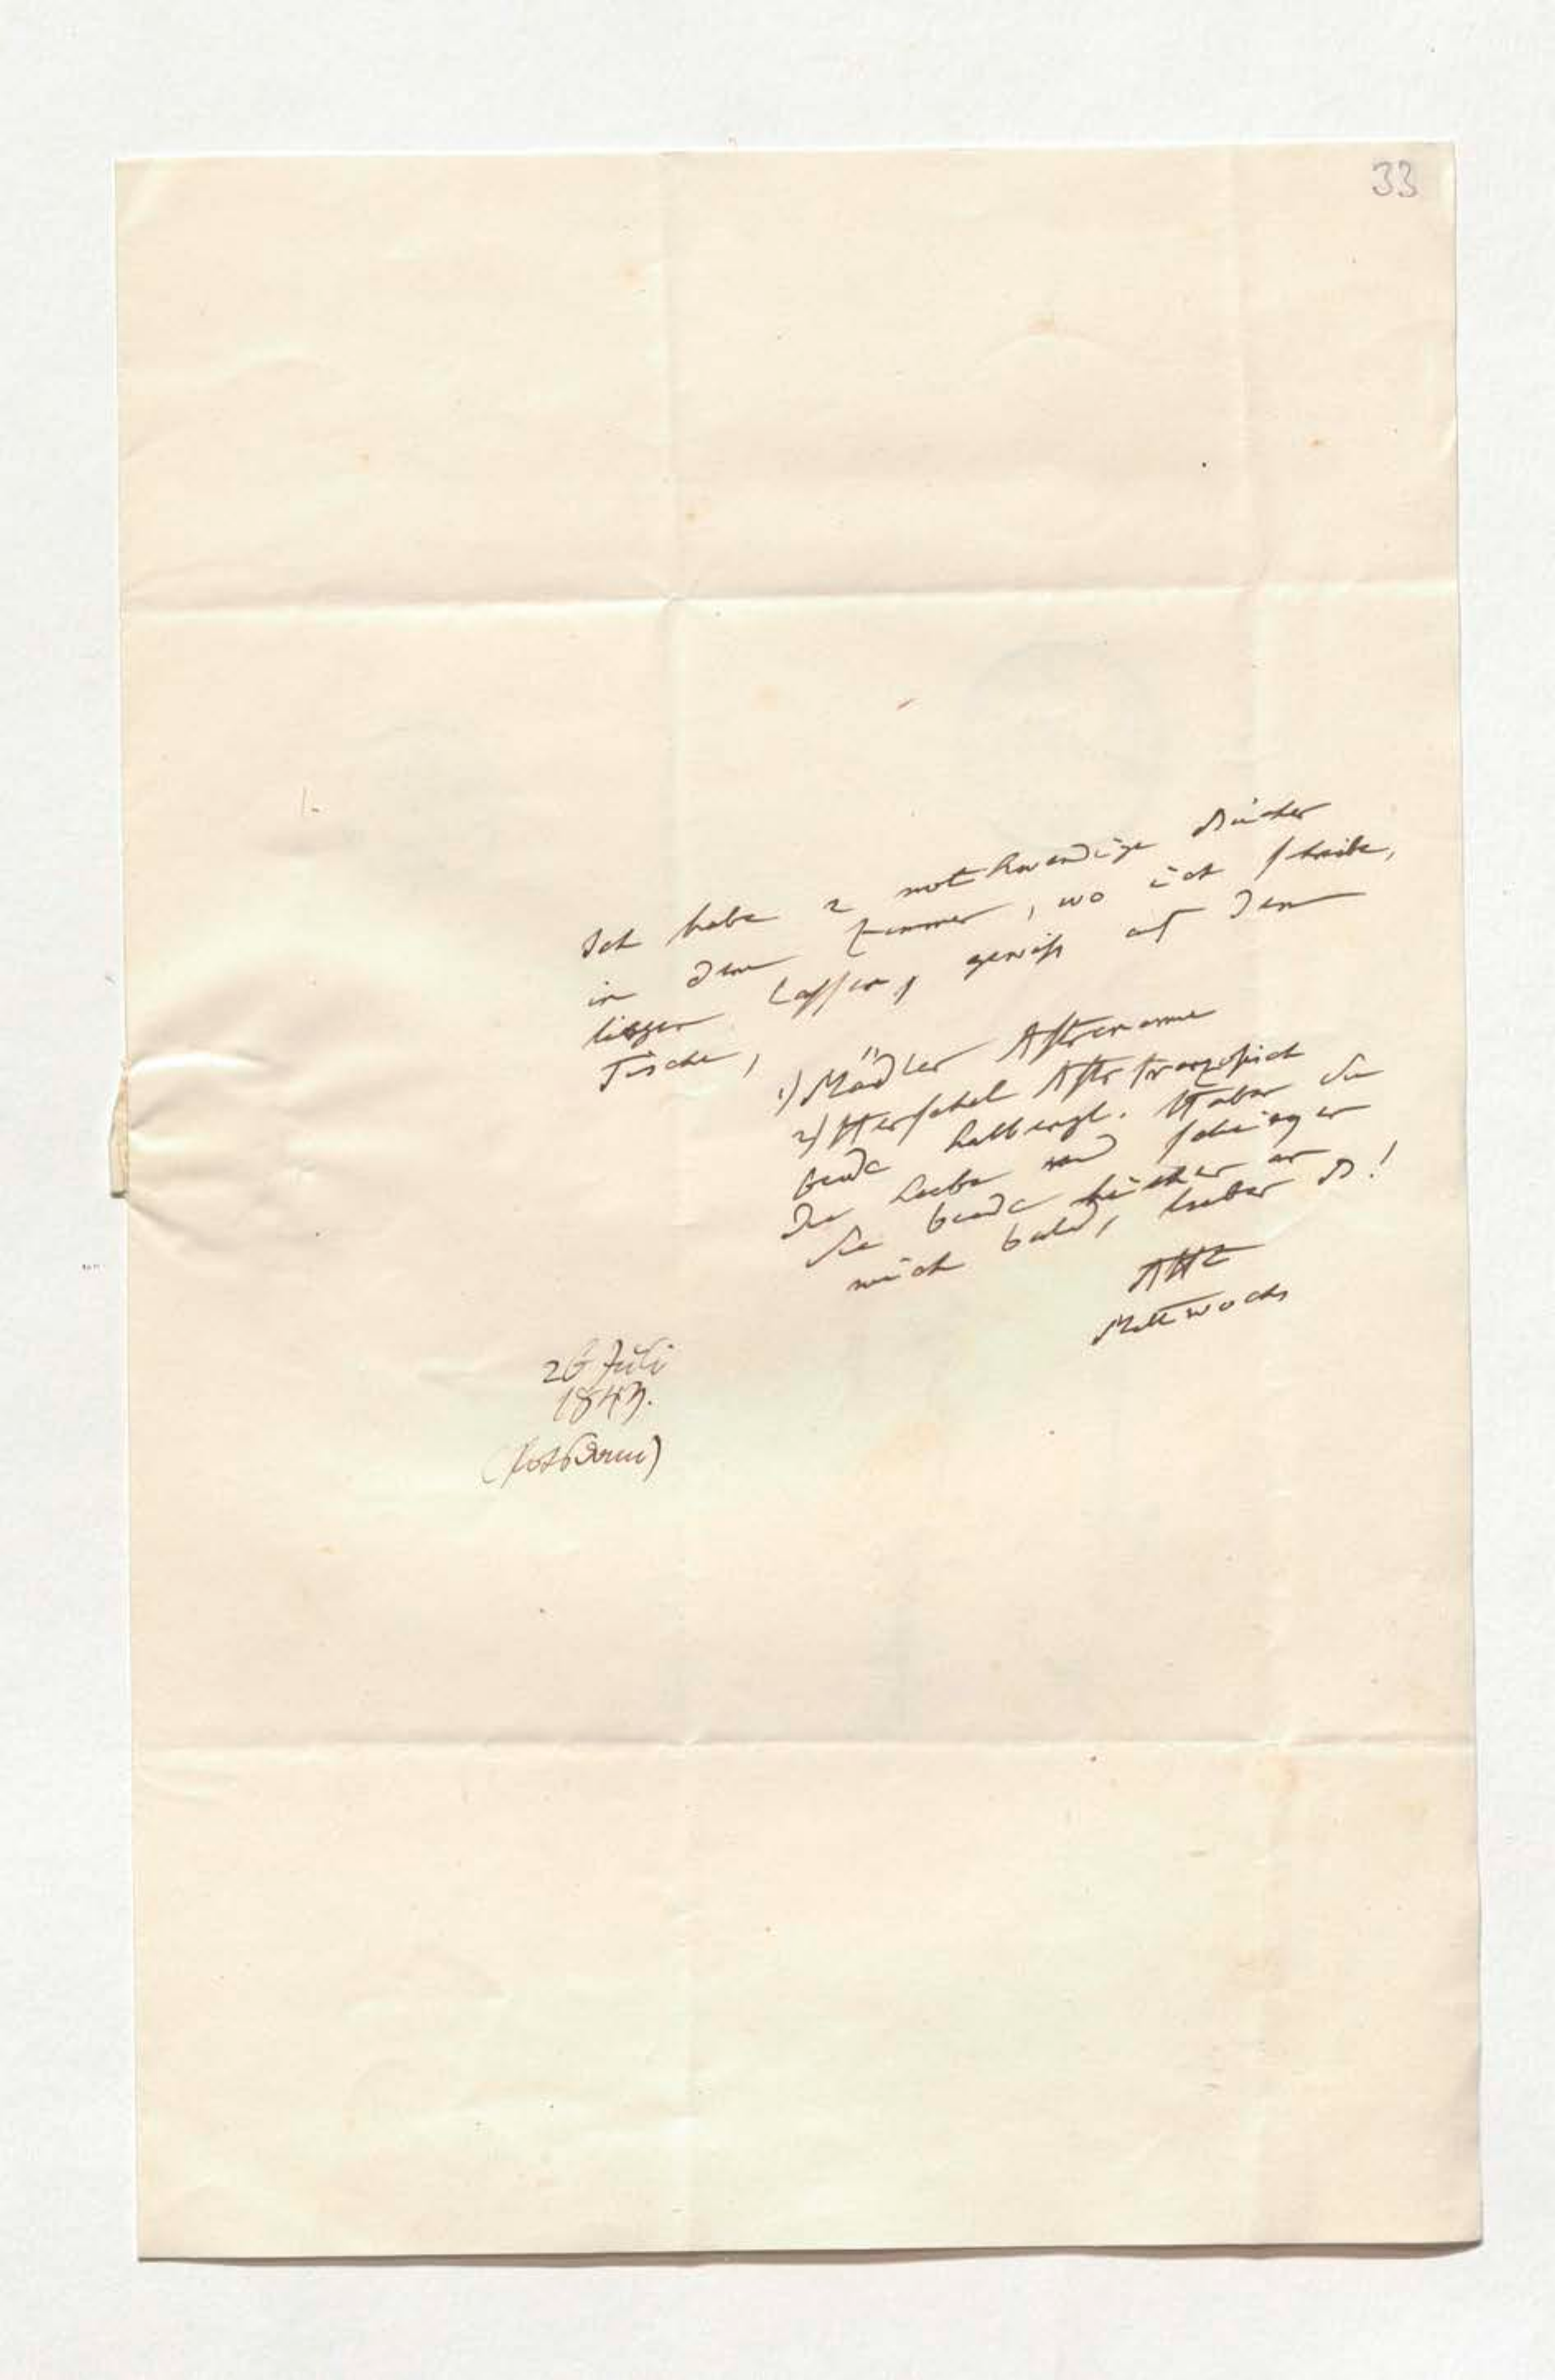 33
Ich habe 2 nothwendige Bücher
in dem Zimmer, wo ich schreibe,
liegen lassen, gewiß auf dem
Tische,
1) Mädler Astronomie
2) Herschel Astr französisch
beide halbengl. Haben Sie
die Liebe und schicken
Sie beide Bücher an
mich bald, lieber B!
AHt
Mittwochs
26 Juli
1843.
(Potsdam)